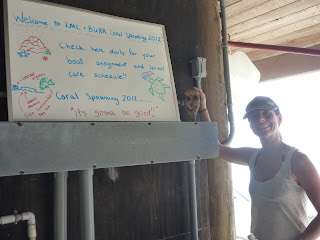 Welcome to KML + BURR Coral Spawning 2012
Check here daily for your
boat assignment and larval
care schedule!!
Coral Spawning 2012......
"its gonna be good!"